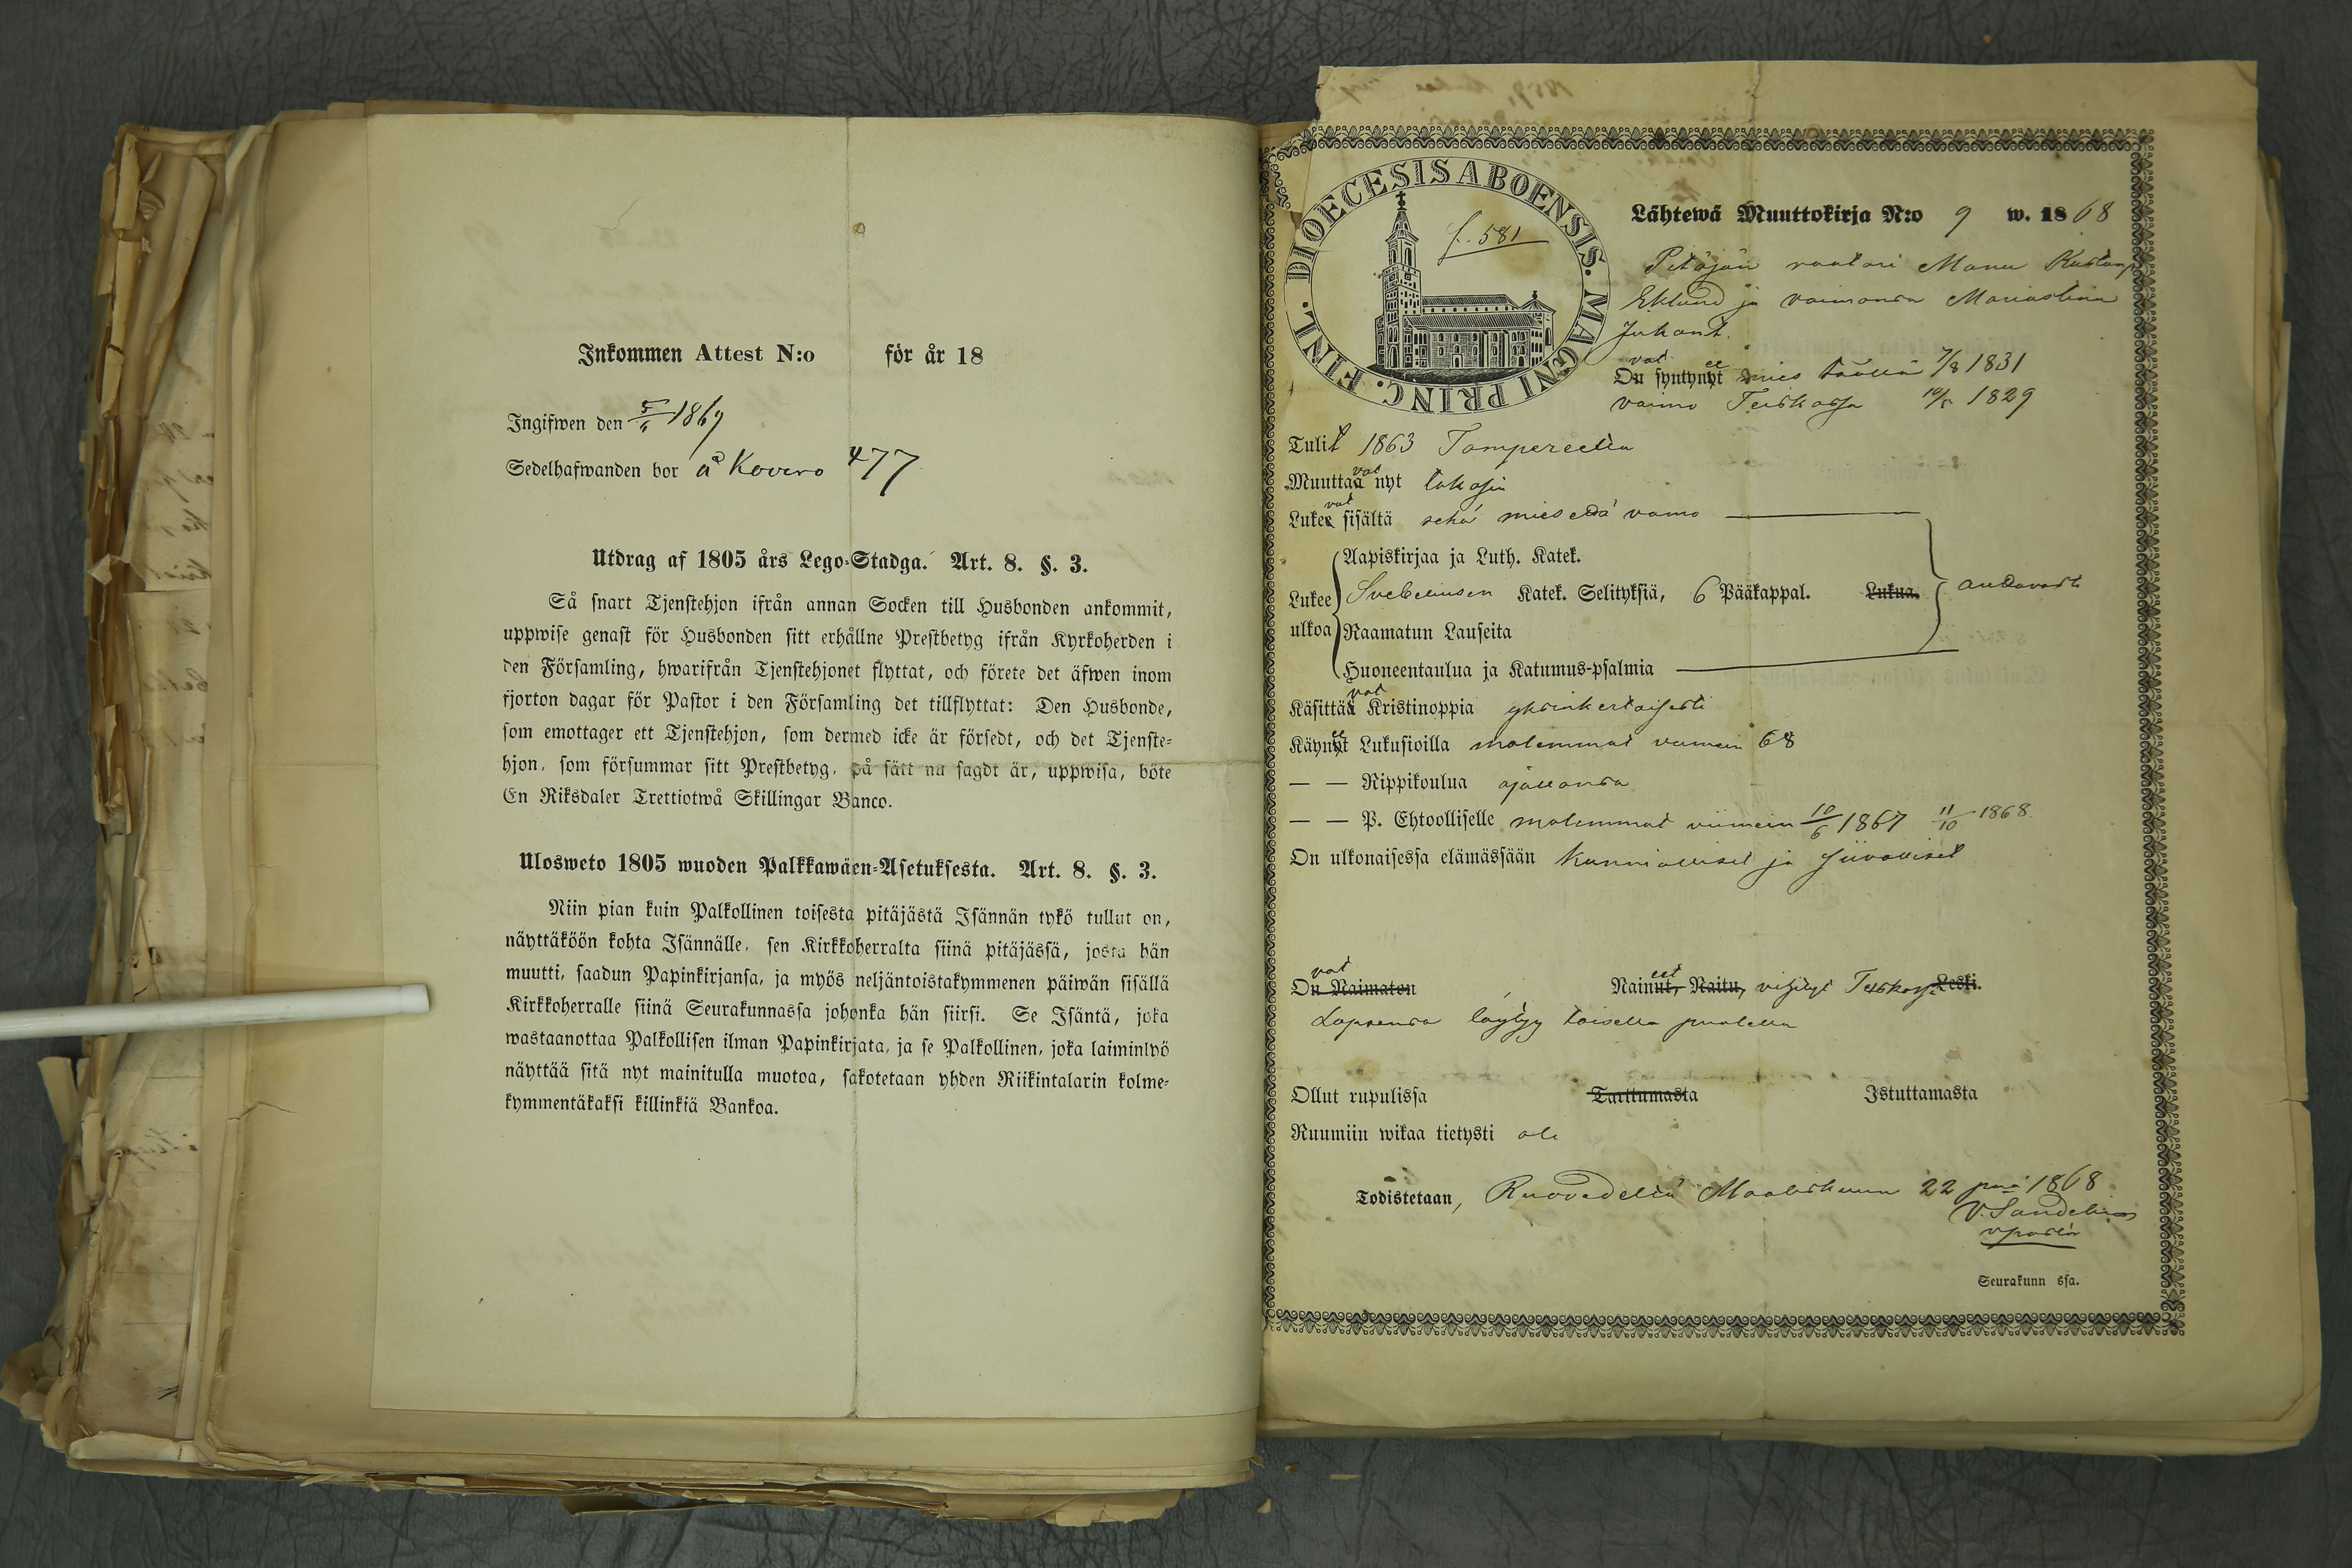 Inkommen Attest N:o för år 18
Ingifwen den 5/11 1869
Sedelhafwanden bor å Kovero 477
Utdrag af 1805 års Lego-Stadga. Art. 8. §. 3.
Så snart Tjenstehjon ifrån annan Socken till Husbonden ankommit,
uppwise genast för Husbonden sitt erhållne Prestbetyg ifrån Kyrkoherden i
den Församling, hwarifrån Tjenstehjonet flyttat, och förete det äfwen inom
fjorton dagar för Pastor i den Församling det tillflyttat: Den Husbonde,
som emottager ett Tjenstehjon, som dermed icke är försedt, och det Tjenste-
hjon, som försummar sitt Prestbetyg, på sätt nu sagdt är, uppwisa, böte
En Riksdaler Trettiotwå Skillingar Banco.
Ulosweto 1805 wuoden Palkkawäen-Asetuksesta. Art. 8. §. 3.
Niin pian kuin Palkollinen toisesta pitäjästä Isännän tykö tullut on,
näyttäköön kohta Isännälle, sen Kirkkoherralta siinä pitäjässä, josta hän
muutti, saadun Papinkirjansa, ja myös neljäntoistakymmenen päiwän sisällä
Kirkkoherralle siinä Seurakunnassa johonka hän siirsi. Se Isäntä, joka
wastaanottaa Palkollisen ilman Papinkirjata, ja se Palkollinen, joka laiminlyö
näyttää sitä nyt mainitulla muotoa, sakotetaan yhden Riikintalarin kolme-
kymmentäkaksi killinkiä Bankoa.
DIOECESIS ABOENSIS. MAGNI PRINC. FINL.
f. 581
Lähtewä Muuttokirja N:o 9 w. 1868
Pitäjän raatari Manu Kustanp
Eklund ja vaimonsa Mariastina
Juhant.
vat et
On syntynyt mies täällä 7/8 1831
vaimo Teiskossa 1829
Tulit 1863 Tampereelta
vat
Muuttaa nyt takasin
vat
Lukee sisältä sekä mies että vaimo
Aapiskirjaa ja Luth. Katek.
Lukee ulkoa Svebeliusen Katek. Selityksiä, 6 Pääkappal. Lukua. auttavasti
Raamatun Lauseita
Huoneentaulua ja Katumus-psalmia
vat
Käsittää Kristinoppia yksinkertaisesti
et
Käynyt Lukusioilla molemmat viimein 68
— — Rippikoulua ajallansa
— — P. Ehtoolliselle molemmat viimein 10/6 1867 11/10 1868
On ulkonaisessa elämässään kunnialliset ja siivolliset
vat eet
On Naimaton Nainut, Naitu, vihityt Teiskossa Leski.
Lapsensa löytyy toisella puolella
Ollut rupulissa Tarttumasta Istuttamasta
Ruumiin wikaa tietysti ole
Todistetaan, Ruovedeltä Maaliskuun 22 pnä 1868
V. Sandelius
vpastor
Seurakunn ssa.